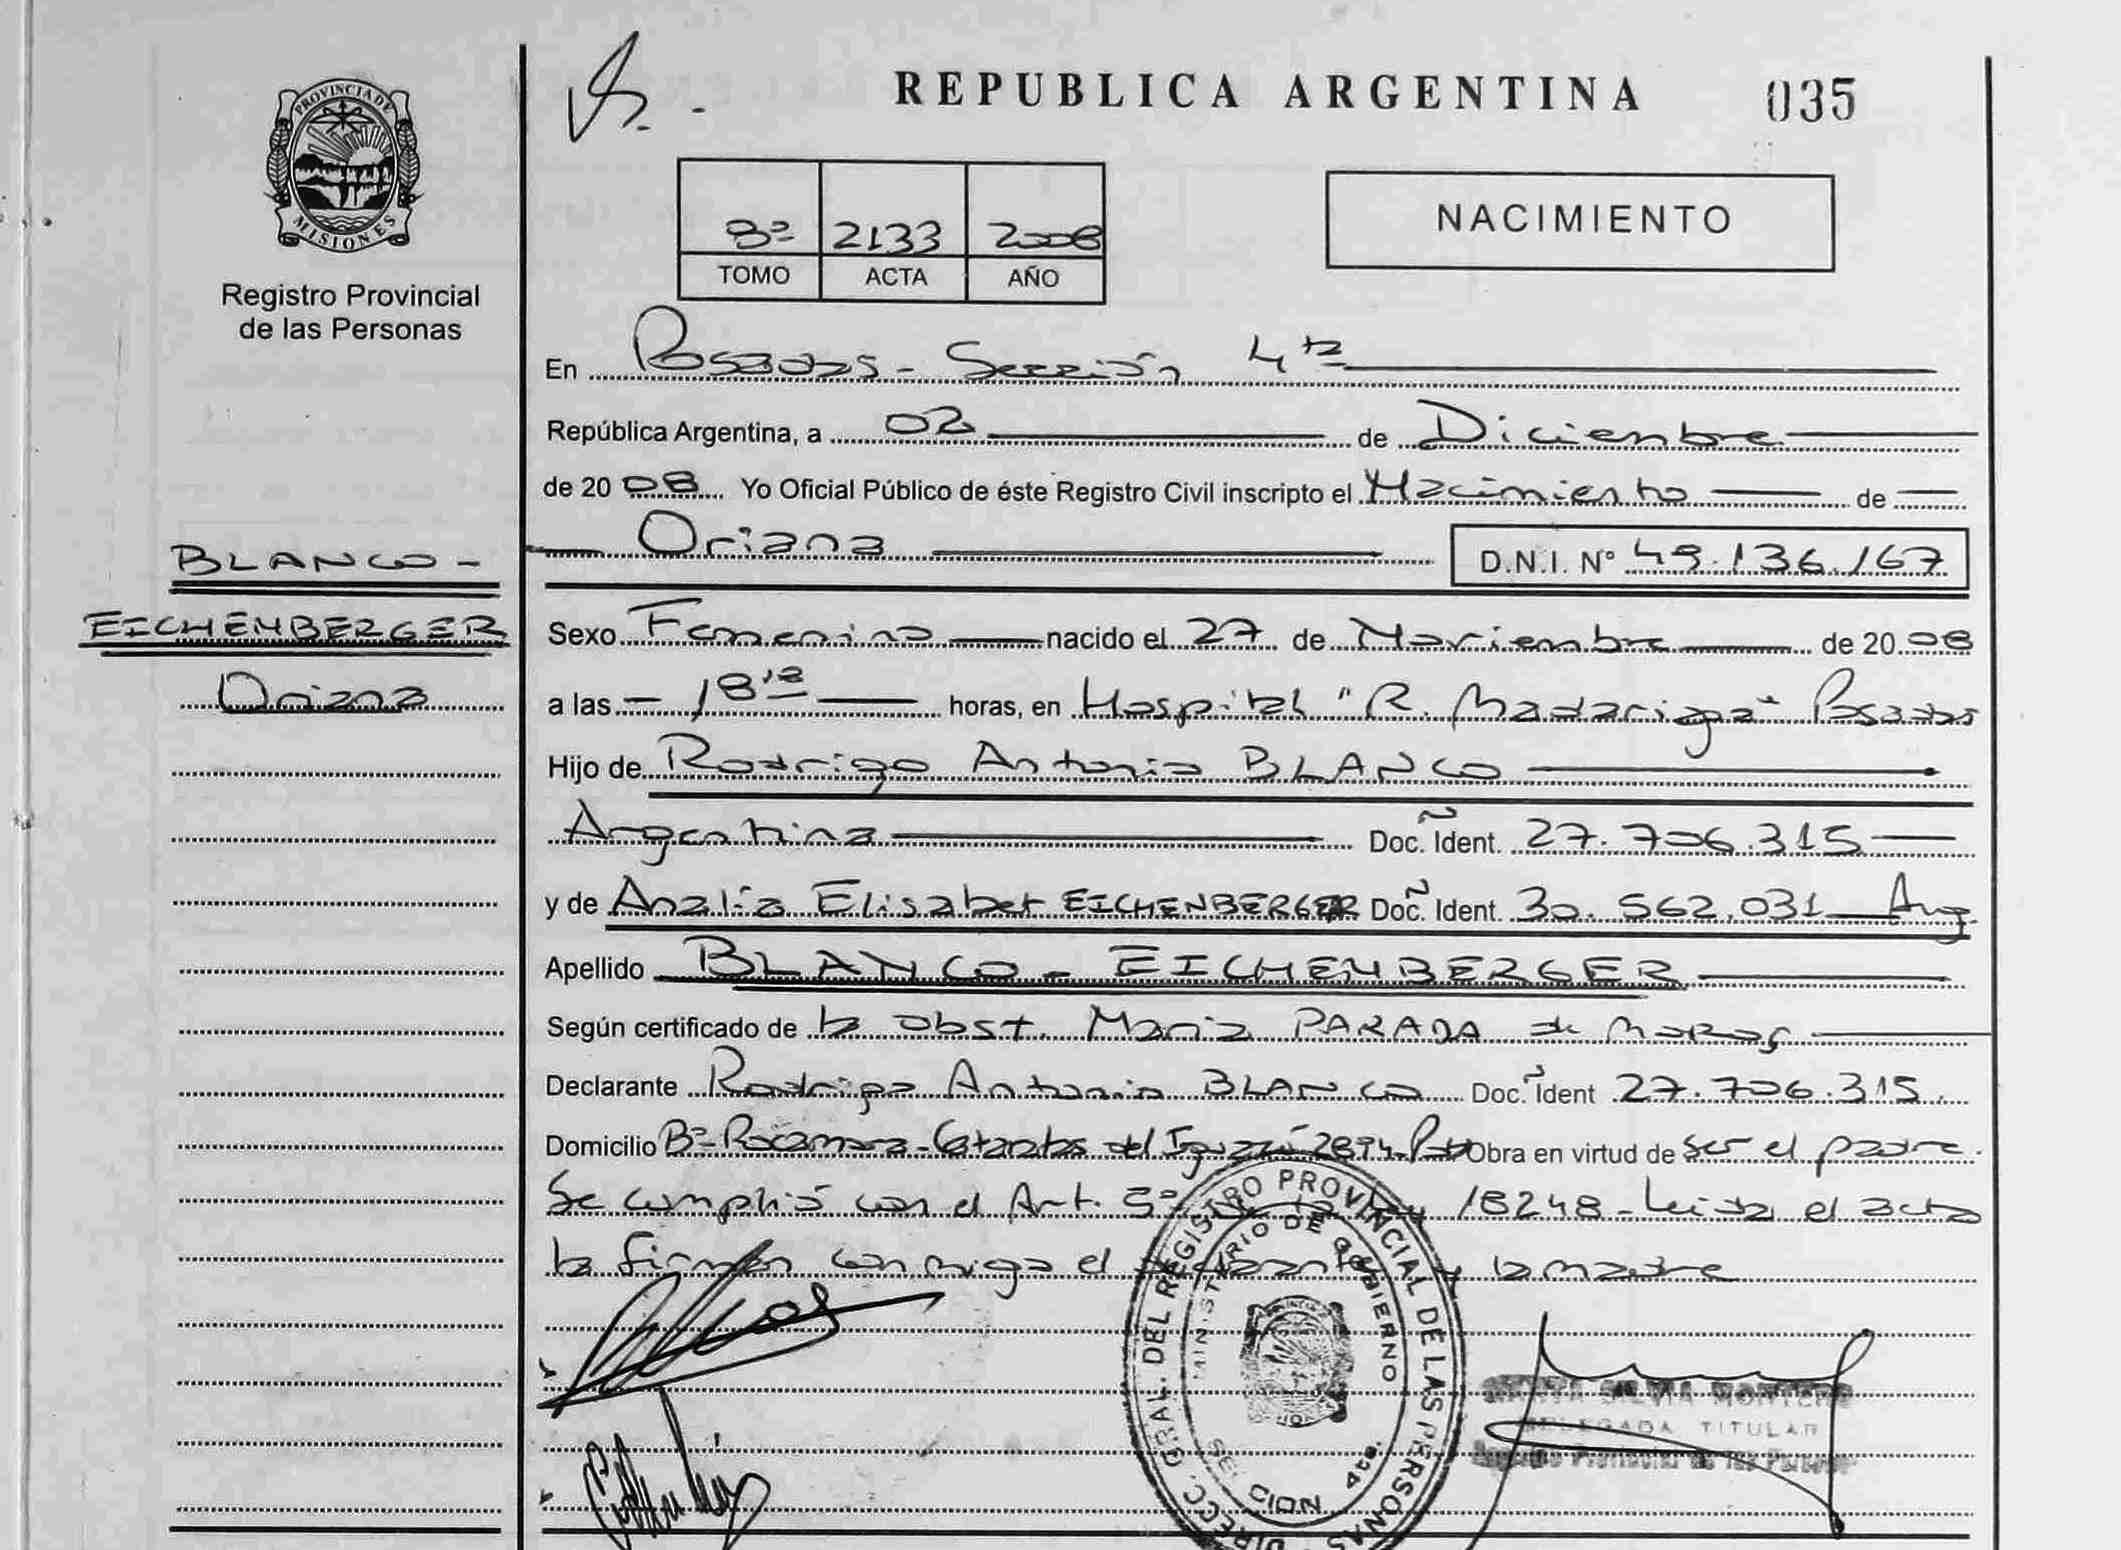 REPUBLICA ARGENTINA 035
PROVINCIA DE
MISIONES
Registro Provincial
de las Personas
3º 2133 2008
TOMO ACTA AÑO
NACIMIENTO
En Posadas - Sección 4ta
República Argentina, a 02 de Diciembre
de 2008 Yo Oficial Público de éste Registro Civil inscripto el Nacimiento de
Oriana D.N.I. Nº 49.136.167
BLANCO -
EICHENBERGER
Oriana
Sexo Femenino nacido el 27 de Noviembre de 2008
a las 18 horas, en Hospital "R. Madariaga" Posadas
Hijo de Rodrigo Antonio BLANCO
Argentina Doc. Ident. 27.706.315
y de Analía Elisabet EICHENBERGER Doc. Ident. 30.562.031 Arg.
Apellido BLANCO - EICHENBERGER
Según certificado de la obst. Maria PARADA de
Declarante Rodrigo Antonio BLANCO Doc. Ident 27.706.315.
Domicilio Bº Rocamora - Cataratas del Iguazú 2894 Obra en virtud de ser el padre.
Se cumplió con el Art. 5º 18248 - Leida el acta
la firman conmigo el declarante y la madre
DIRECC. GRAL. DEL REGISTRO PROVINCIAL DE LAS PERSONAS
MINISTERIO DE GOBIERNO
SECCION 4ta.
SILVIA MONTERO
DELEGADA TITULAR
Registro Provincial de las Personas